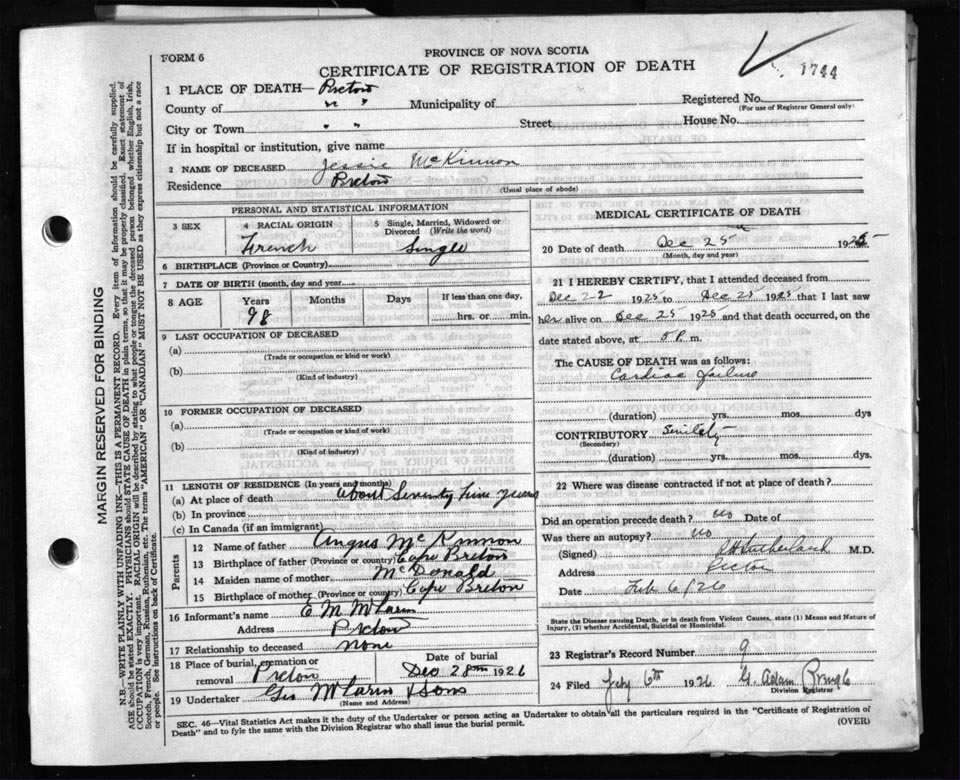 FORM 6
PROVINCE OF NOVA SCOTIA
CERTIFICATE OF REGISTRATION OF DEATH
1744
1 PLACE OF DEATH— Pictou
County of " " Municipality of Registered No.
(For use of Registrar General only)
City or Town " " Street House No.
If in hospital or institution, give name
2 NAME OF DECEASED Jessie McKinnon
Residence Pictou
(Usual place of abode)
PERSONAL AND STATISTICAL INFORMATION
3 SEX 4 RACIAL ORIGIN 5 Single, Married, Widowed or Divorced (Write the word)
French Single
6 BIRTHPLACE (Province or Country)
7 DATE OF BIRTH (month, day and year)
8 AGE Years Months Days If less than one day,
98 hrs. or min.
9 LAST OCCUPATION OF DECEASED
(a)
(Trade or occupation or kind or work)
(b)
(Kind of industry)
10 FORMER OCCUPATION OF DECEASED
(a)
(Trade or occupation or kind of work)
(b)
(Kind of industry)
11 LENGTH OF RESIDENCE (In years and months)
(a) At place of death about Seventy five years
(b) In province
(c) In Canada (if an immigrant)
Parents
12 Name of father Angus McKinnon
13 Birthplace of father (Province or country) Cape Breton
14 Maiden name of mother McDonald
15 Birthplace of mother (Province or country) Cape Breton
16 Informant's name E M McLaren
Address Pictou
17 Relationship to deceased none
18 Place of burial, cremation or removal Pictou Date of burial Dec 28th 1926
19 Undertaker Geo McLaren & Sons
(Name and Address)
MEDICAL CERTIFICATE OF DEATH
20 Date of death Dec 25 1925
(Month, day and year)
21 I HEREBY CERTIFY, that I attended deceased from
Dec 22 1925 to Dec 25 1925 that I last saw
her alive on Dec 25 1925 and that death occurred, on the
date stated above, at 5 P. m.
The CAUSE OF DEATH was as follows:
Cardiac failure
(duration) yrs. mos. dys
CONTRIBUTORY Senility
(Secondary)
(duration) yrs. mos. dys.
22 Where was disease contracted if not at place of death?
Did an operation precede death? no Date of
Was there an autopsy? no
(Signed) Sutherland M.D.
Address Pictou
Date Feb 6/26
State the Disease causing Death, or in death from Violent Causes, state (1) Means and Nature of Injury, (2) whether Accidental, Suicidal or Homicidal.
23 Registrar's Record Number 9
24 Filed Feby 6th 1926 G. Adam Pringle
Division Registrar
SEC. 46—Vital Statistics Act makes it the duty of the Undertaker or person acting as Undertaker to obtain all the particulars required in the "Certificate of Registration of
Death" and to fyle the same with the Division Registrar who shall issue the burial permit.
(OVER)
MARGIN RESERVED FOR BINDING
N.B.—WRITE PLAINLY WITH UNFADING INK—THIS IS A PERMANENT RECORD. Every item of information should be carefully supplied.
AGE should be stated EXACTLY. PHYSICIANS should STATE CAUSE OF DEATH in plain terms, so that it may be properly classified. Exact statement of
OCCUPATION is very important. RACIAL ORIGIN will be described by stating to what people or tongue the deceased person belonged whether English, Irish,
Scotch, French, German, Russian, Ruthenian, etc. The terms "AMERICAN" OR "CANADIAN" MUST NOT BE USED as they express citizenship but not a race
or people. See instructions on back of Certificate.